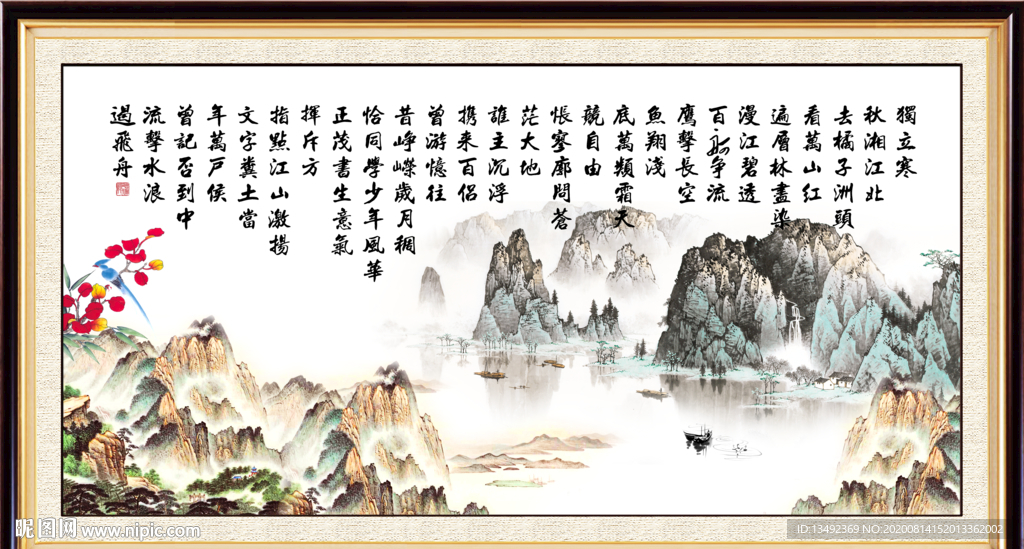 獨立寒
秋湘江北
去橘子洲頭
看萬山紅
遍層林盡染
漫江碧透
百舸争流
鹰擊長空
魚翔淺
底萬類霜天
競自由
悵寥廓問蒼
茫大地
誰主沉浮
携来百侣
曾游憶往
昔峥嶸歲月稠
恰同學少年風華
正茂書生意氣
揮斥方
指點江山激揚
文字糞土當
年萬戸侯
曾記否到中
流擊水浪
過飛舟
昵图网 www.nipic.com
ID:13492369 NO:20200814152013362002